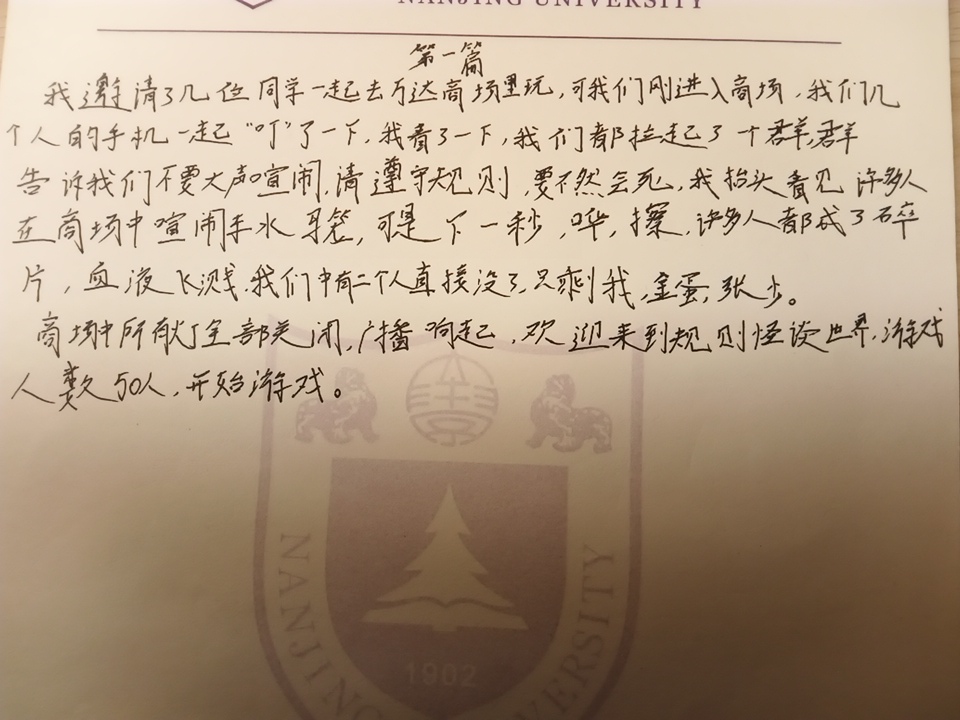 NANJING UNIVERSITY
第一篇
我邀请了几位同学一起去万达商场里玩,可我们刚进入商场,我们几
个人的手机一起“叮”了一下,我看了一下,我们都拉起了一个群,群
告诉我们不要大声喧闹,请遵守规则,要不然会死,我抬头看见许多人
在商场中喧闹手水,可是下一秒,哗,擦,许多人都成了碎
片,血液飞溅,我们中有二个人直接没了,只剩我,金蛋,张少。
商场中所有灯全部关闭,广播响起,欢迎来到规则怪谈世界,游戏
人数50人,开始游戏。
NANJING UNIVERSITY
1902